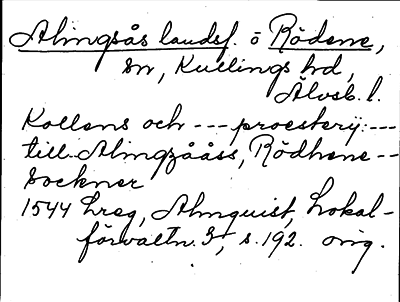 Alingsås landsf. o Rödene,
sn, Kullings hd,
Älvsb. l.
Kollens och --- proestery: ---
till Alingzååss, Rödhene --
Sockner
1544 Lreg, Almquist, Lokal-
förvaltn. 3, s. 192. orig.